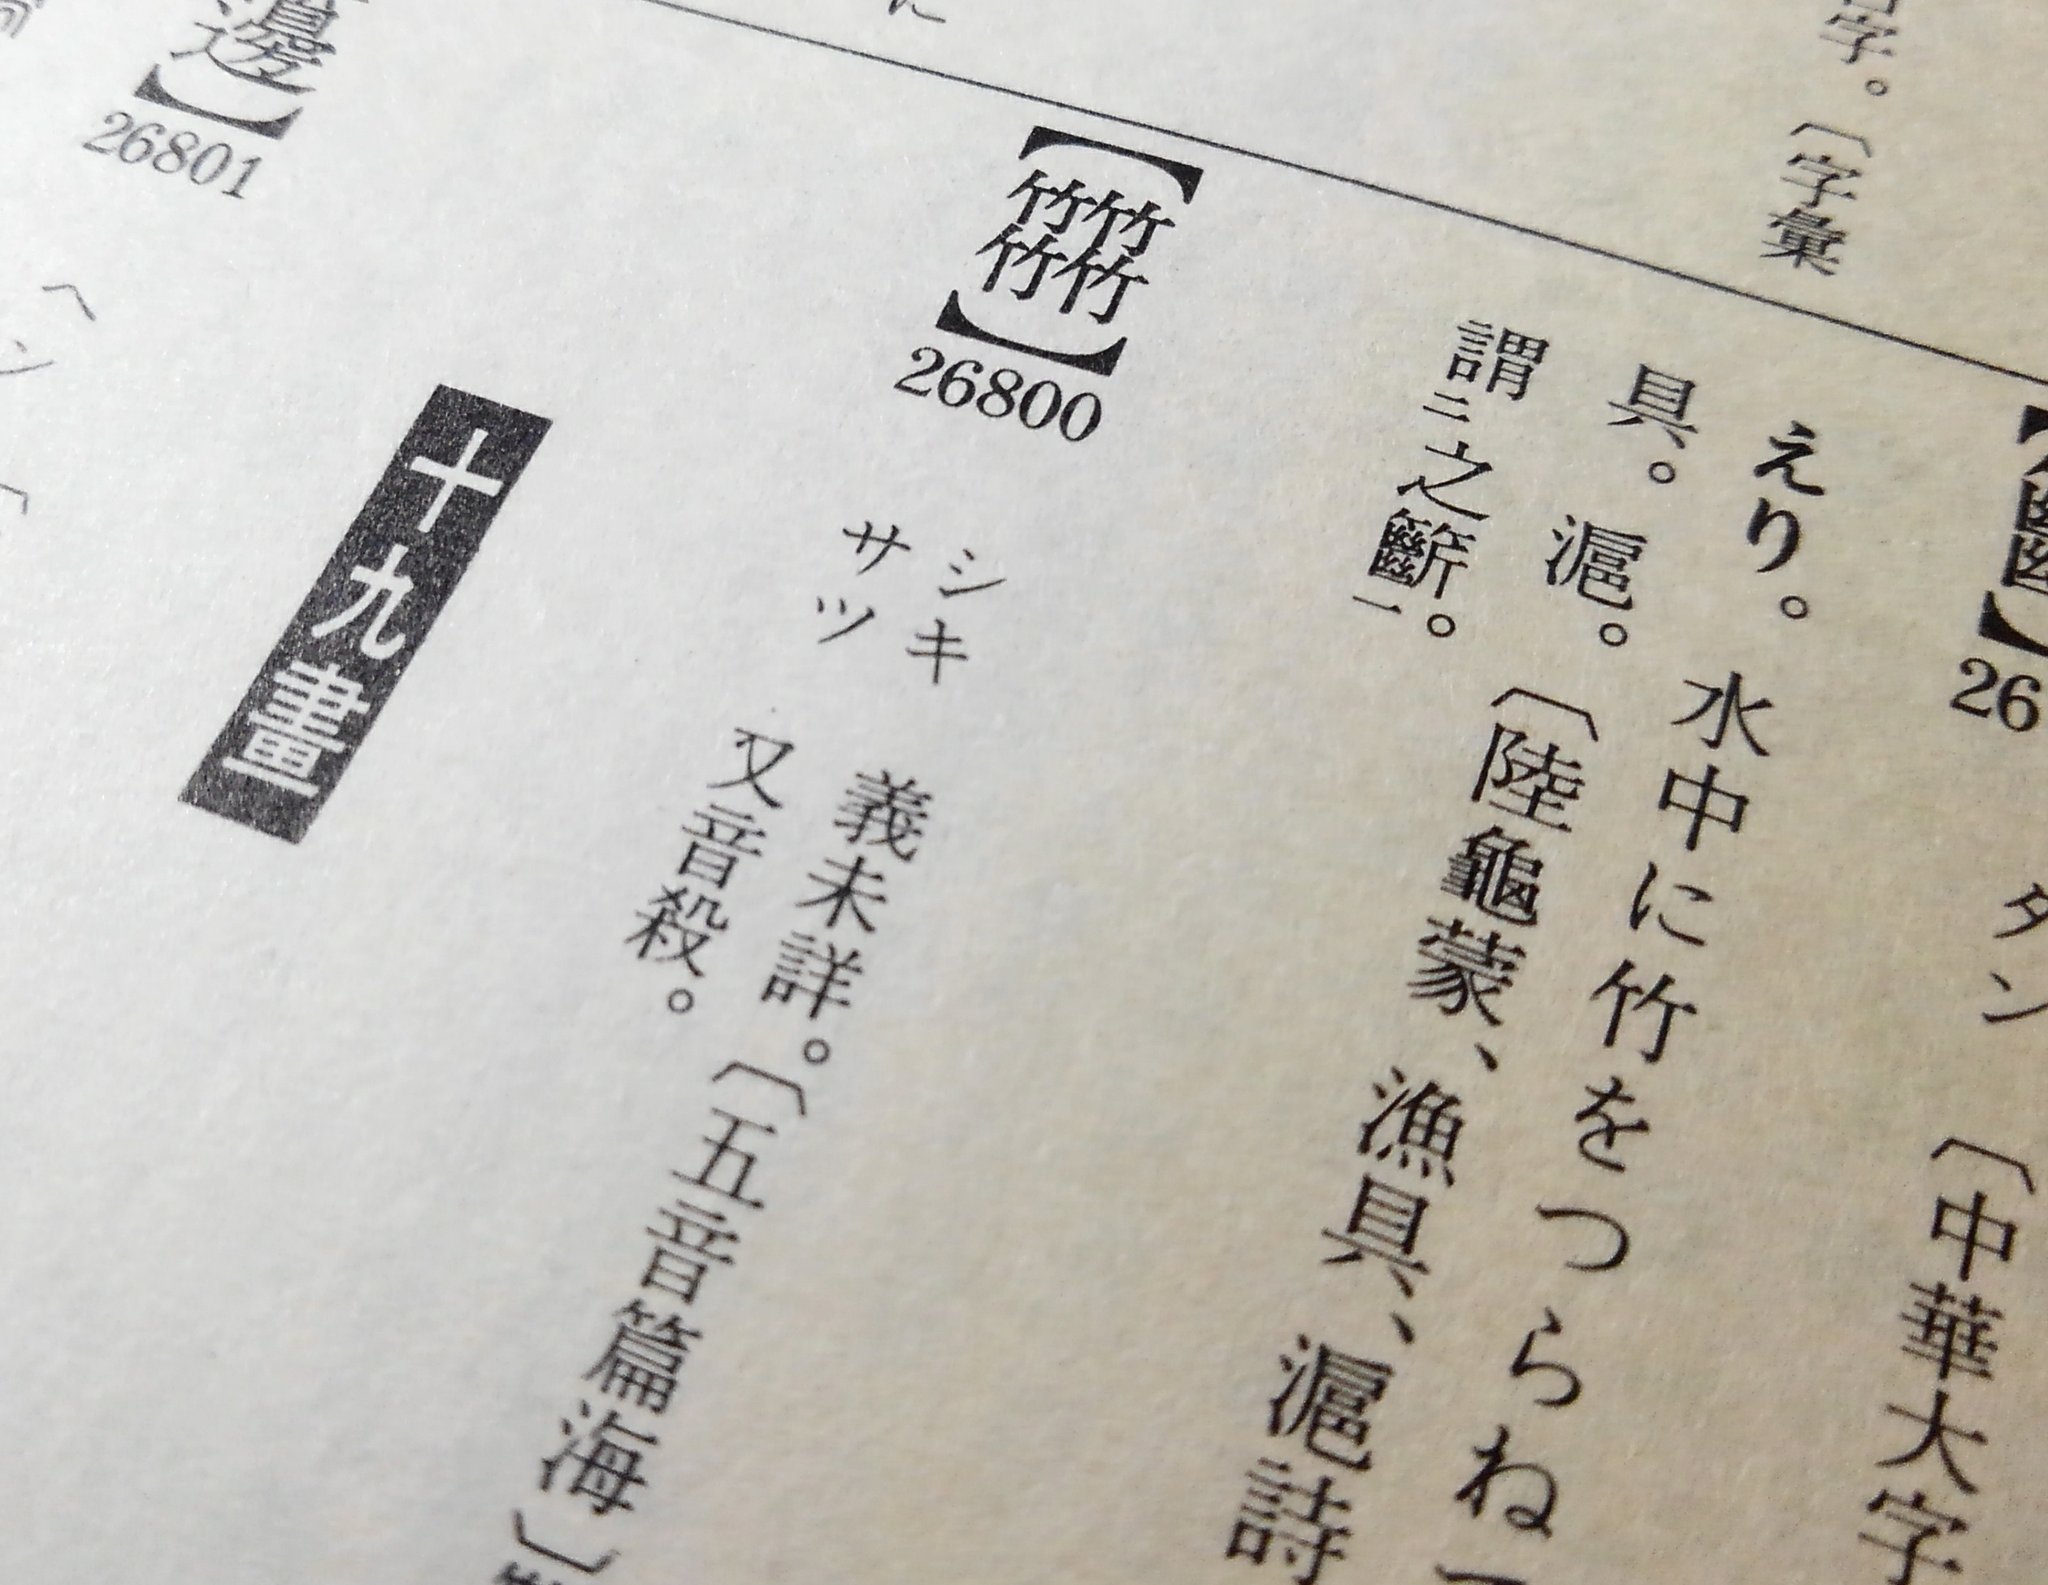 字。〔字彙
に
26
タン 〔中華大字
えり。水中に竹をつらね
具。滬。〔陸龜蒙、漁具、滬詩
謂㆓之籪㆒。
【𥸙】
26800
シキ 義未詳。〔五音篇海〕
サツ 又音殺。
十九畫
邊】
26801
ヘン